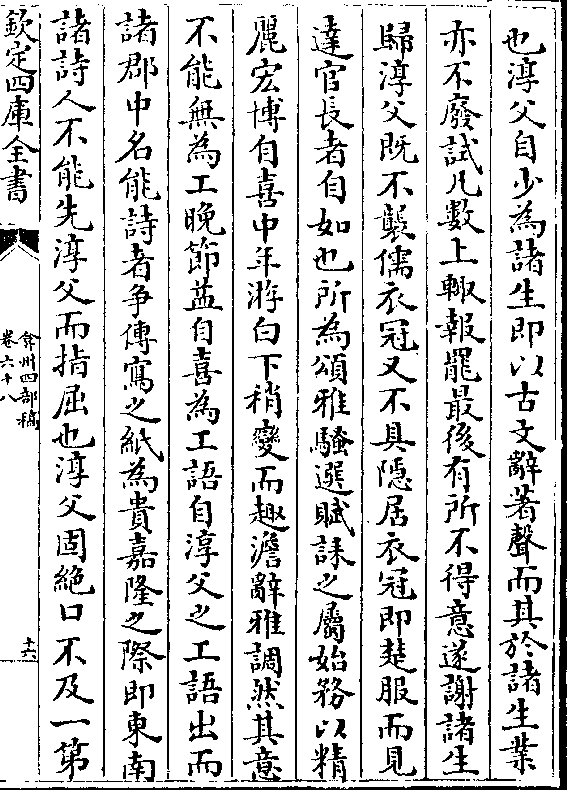 也淳父自少為諸生即以古文辭著聲而其於諸生業
亦不廢試凡數上輙報罷最後有所不得意遂謝諸生
歸淳父既不襲儒衣冠又不具隱居衣冠即楚服而見
達官長者自如也所為頌雅騷選賦誄之屬始務以精
麗宏博自喜中年游白下稍變而趣澹辭雅調然其意
不能無為工晚節益自喜為工語自淳父之工語出而
諸郡中名能詩者爭傳寫之紙為貴嘉隆之際即東南
諸詩人不能先淳父而指屈也淳父固絶口不及一第
欽定四庫全書
弇州四部稿
卷六十八
十六